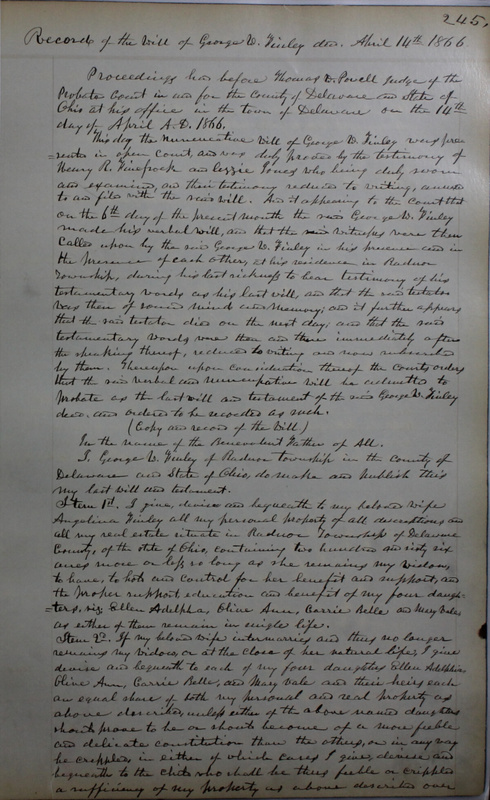 245.
Record of the Will of George W. Finley decd. April 14th 1866
Proceedings had before Thomas W. Powell Judge of the
Probate Court in and for the County of Delaware and State of
Ohio at his office in the town of Delaware on the 14th
day of April A.D. 1866.
This day the Nuncupative Will of George W. Finley was pre-
sented in open Court, and was duly proved by the testimony of
Henry R. and Lizzie Jones who being duly sworn
and examined, and their testimony reduced to writing, annexed
to and filed with the said Will. And it appearing to the Court that
on the 6th day of the present month the said George W. Finley
made his verbal will, and that the said witnesses were then
called upon by the said George W. Finley in his presence and in
the presence of each other, at his residence in Radnor
Township, during his last sickness to bear testimony of his
testamentary words as his last will, and that the said testator
was then of sound mind and memory; and it further appears
that the said testator died on the next day; and that the said
testamentary words were then and there immediately after
the speaking thereof, reduced to writing and now subscribed
by them. Thereupon upon consideration thereof the Court orders
that the said verbal and nuncupative will be admitted to
Probate as the last will and testament of the said George W. Finley
decd. and ordered to be recorded as such.
(Copy and record of the Will)
In the name of the Benevolent Father of All.
I, George W. Finley of Radnor township in the County of
Delaware and State of Ohio, do make and publish this
my last will and testament.
Item 1st. I give, devise and bequeath to my beloved wife
Angelina Finley all my personal property of all descriptions and
all my real estate situate in Radnor Township of Delaware
County, of the state of Ohio, containing two hundred and sixty six
acres more or less, so long as she remains my widow,
to have, to hold and control for her benefit and support, and
the proper support education and benefit of my four daugh-
ters, viz; Ellen Adelpha, Olive Ann, Carrie Belle and Mary Vale
as either of them remain in single life.
Item 2. If my beloved wife intermarries and thus no longer
remains my widow, or at the close of her natural life, I give
devise and bequeath to each of my four daughters Ellen Adelphia
Olive Ann, Carrie Belle, and Mary Vale and their heirs each
an equal share of both my personal and real property as
above described, unless either of the above named daughters
should prove to be or should become of a more feeble
and delicate constitution than the others, or in any way
be crippled, in either of which cases I give, devise and
bequeath to the child who shall be thus feeble or crippled
a sufficiency of my property as above described over